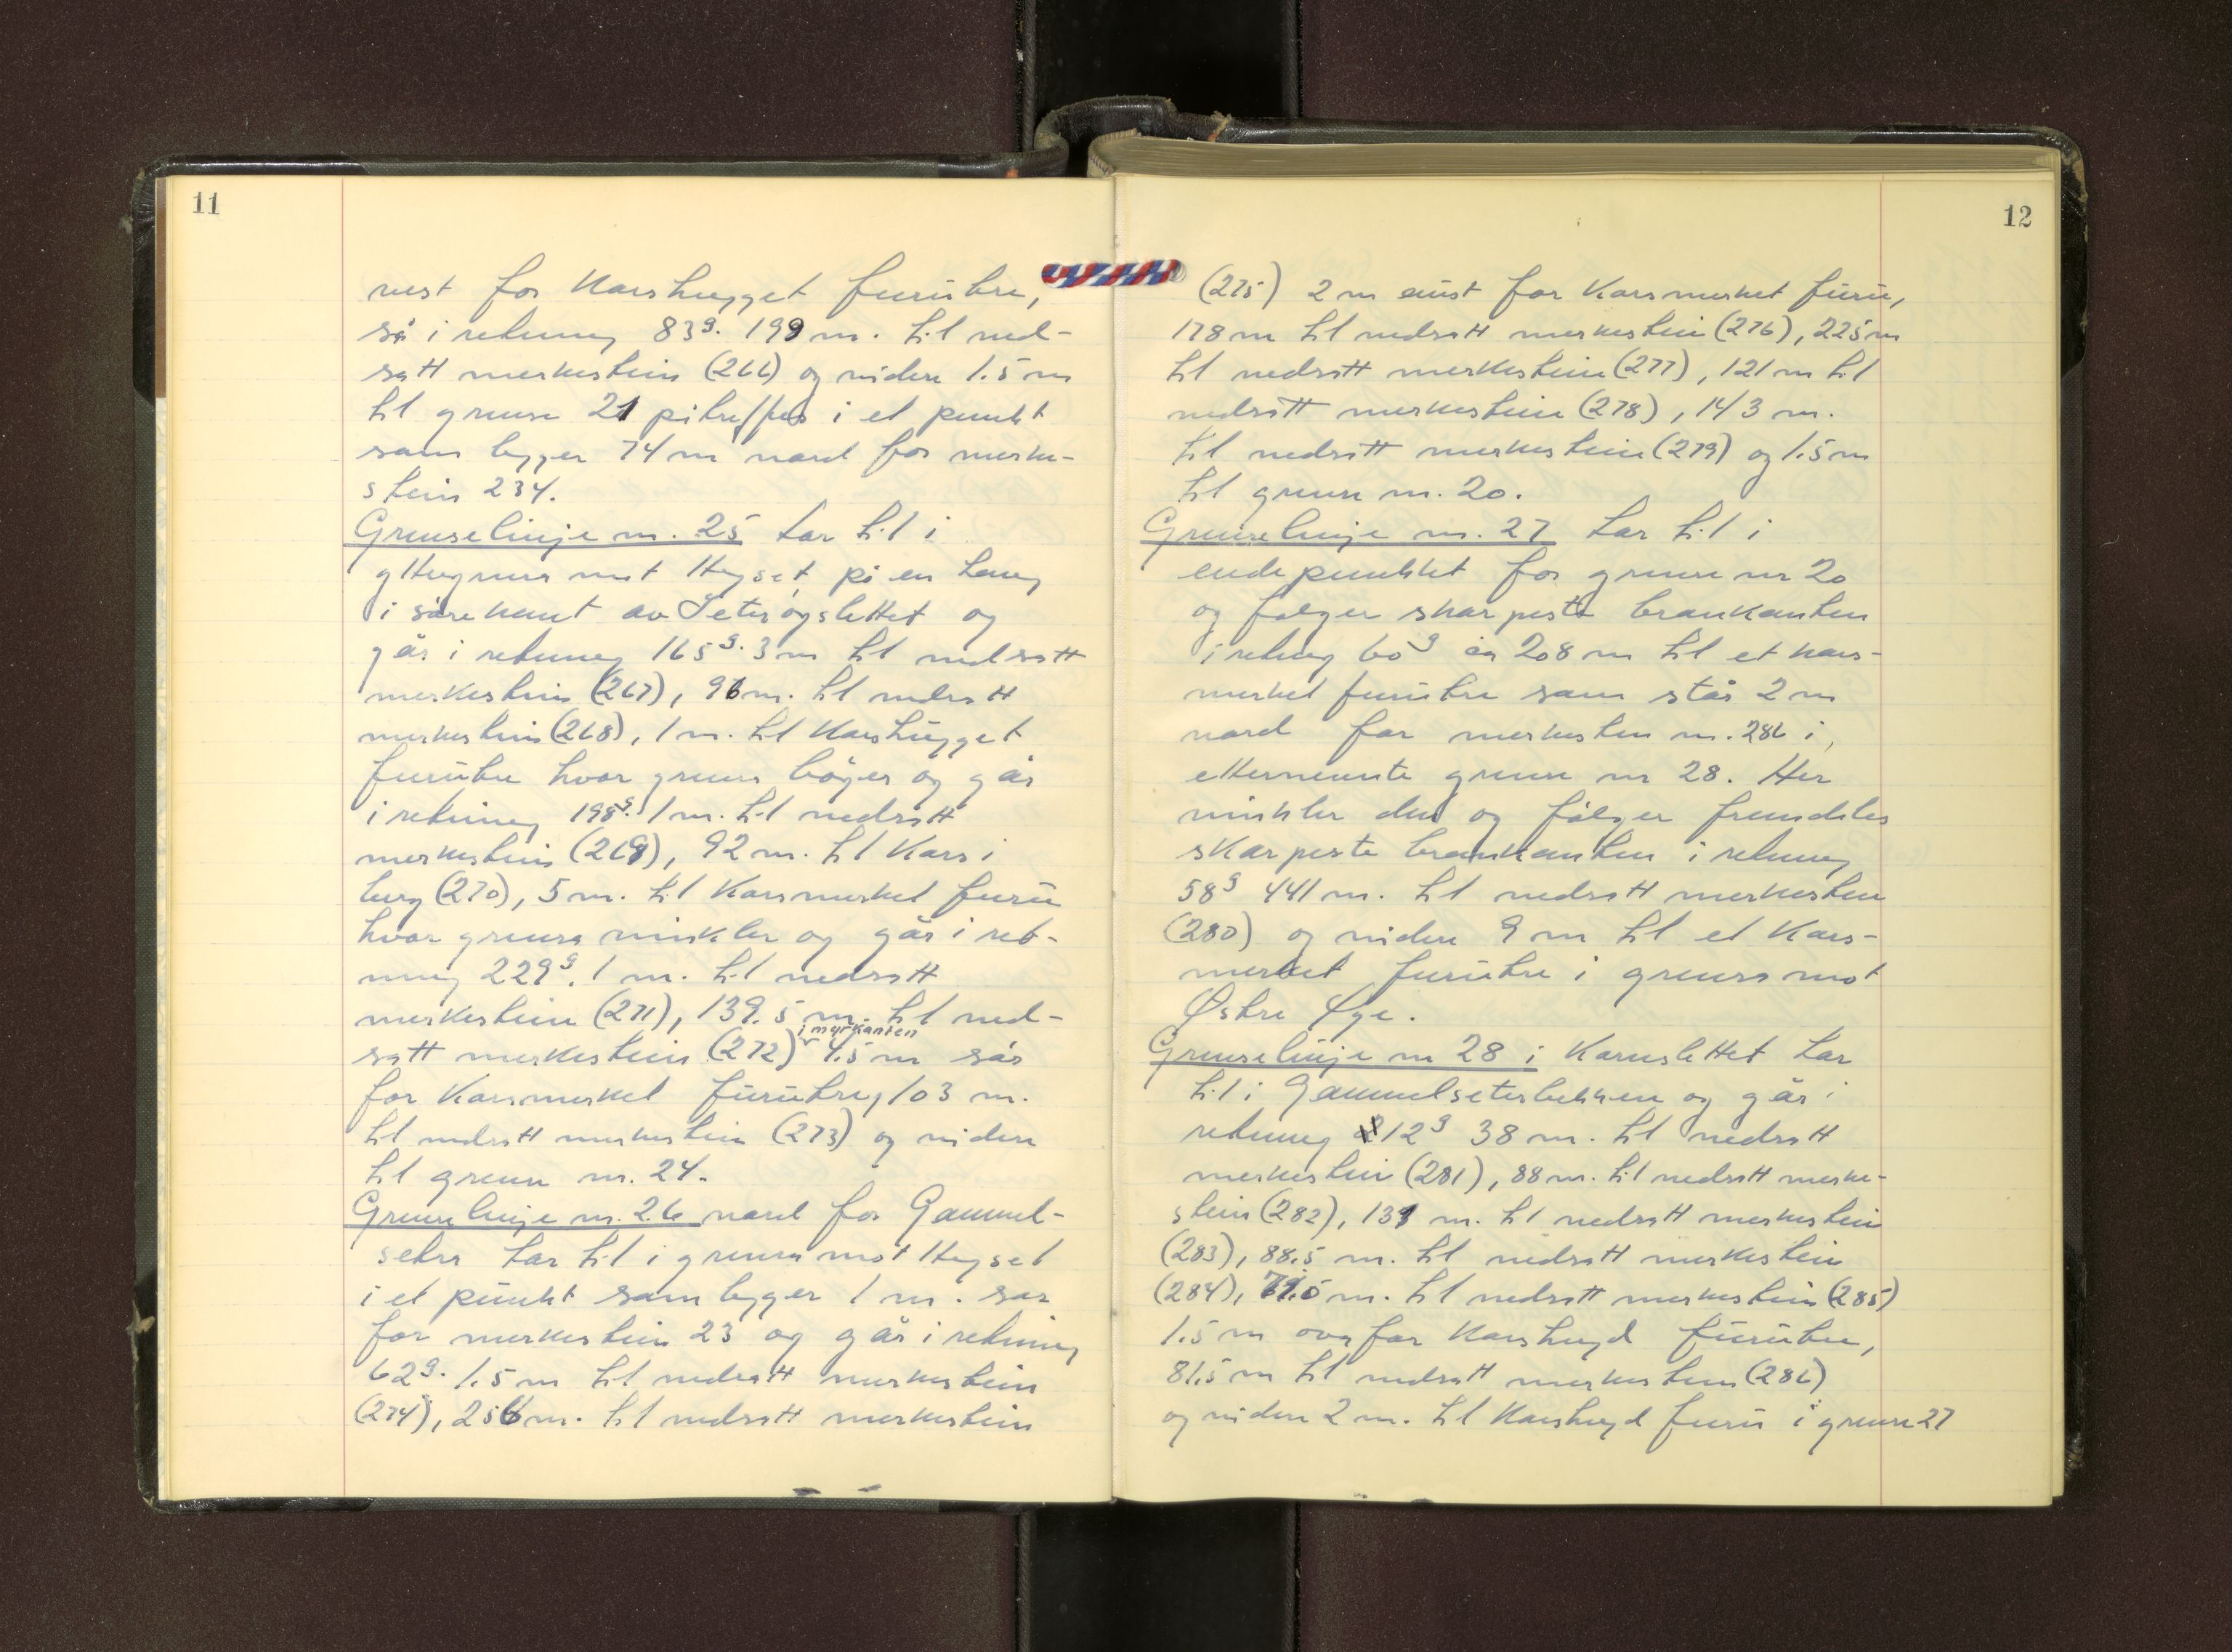 11
vest for Karshugget furutre,
så i retning 83g. 199 m. til ned-
satt merkestein (266) og videre 1.5 m
til grense 21 påtreffes i et punkt
som ligger 74 m nord for merke-
stein 234.
Grenselinje nr. 25 tar til i
yttergrensa mot Hyset, på en haug
i søre kant av Seterøgslettet og
går i retning 165g. 3 m til nedsatt
merkestein (267), 96 m. til nedsatt
merkestein (268), 1 m. til Karshugget
furutre hvor grensa bøyer og går
i retning 198g. 1 m. til nedsatt
merkestein (269), 92 m. til Kars i
berg (270), 5 m. til Karsmerket furu
hvor grensa vinkler og går i ret-
ning 229g. 1 m. til nedsatt
merkestein (271), 139.5 m. til ned-
i myrkanten
satt merkestein (272) 4.5 m sør
for Karsmerket furutre, 103 m.
til nedsatt merkestein (273) og videre
til grense nr. 24.
Grenselinje nr. 26 nord for Gammel-
setra tar til i grensa mot Hyset
i et punkt som ligger 1 m. sør
for merkestein 23 og går i retning
62g. 1.5 m til nedsatt merkestein
(274), 256 m. til nedsatt merkestein
12
(275) 2 m aust for Karsmerket furu,
178 m til nedsatt merkestein (276), 225 m
til nedsatt merkestein (277), 121 m til
nedsatt merkestein (278), 143 m.
til nedsatt merkestein (279) og 1.5 m
til grense nr. 20.
Grenselinje nr. 27 tar til i
endepunktet for grense nr 20
og følger skarpeste braukanten
i retning 60g ca 208 m til et kars-
merket furutre som står 2 m
nord for merkesten nr. 286 i,
etternemnte grense nr 28. Her
vinkler den og følger fremdeles
skarpeste braukanten i retning
58g 441 m. til nedsatt merkesten
(280) og videre 9 m til et Kars-
merket furutre i grensa mot
Østre Øye.
Grenselinje nr 28 i Karuslettet tar
til i Gammelseterbekken og går i
retning 12g 38 m. til nedsatt
merkestein (281), 88 m. til nedsatt merke-
stein (282), 131 m. til nedsatt merkestein
(283), 88.5 m. til nedsatt merkestein
(284), 71.5 m. til nedsatt merkestein (285)
1.5 m ovafor Karshugd furutre,
81.5 m til nedsatt merkesten (286)
og videre 2 m. til Karshugd furu i grense 27